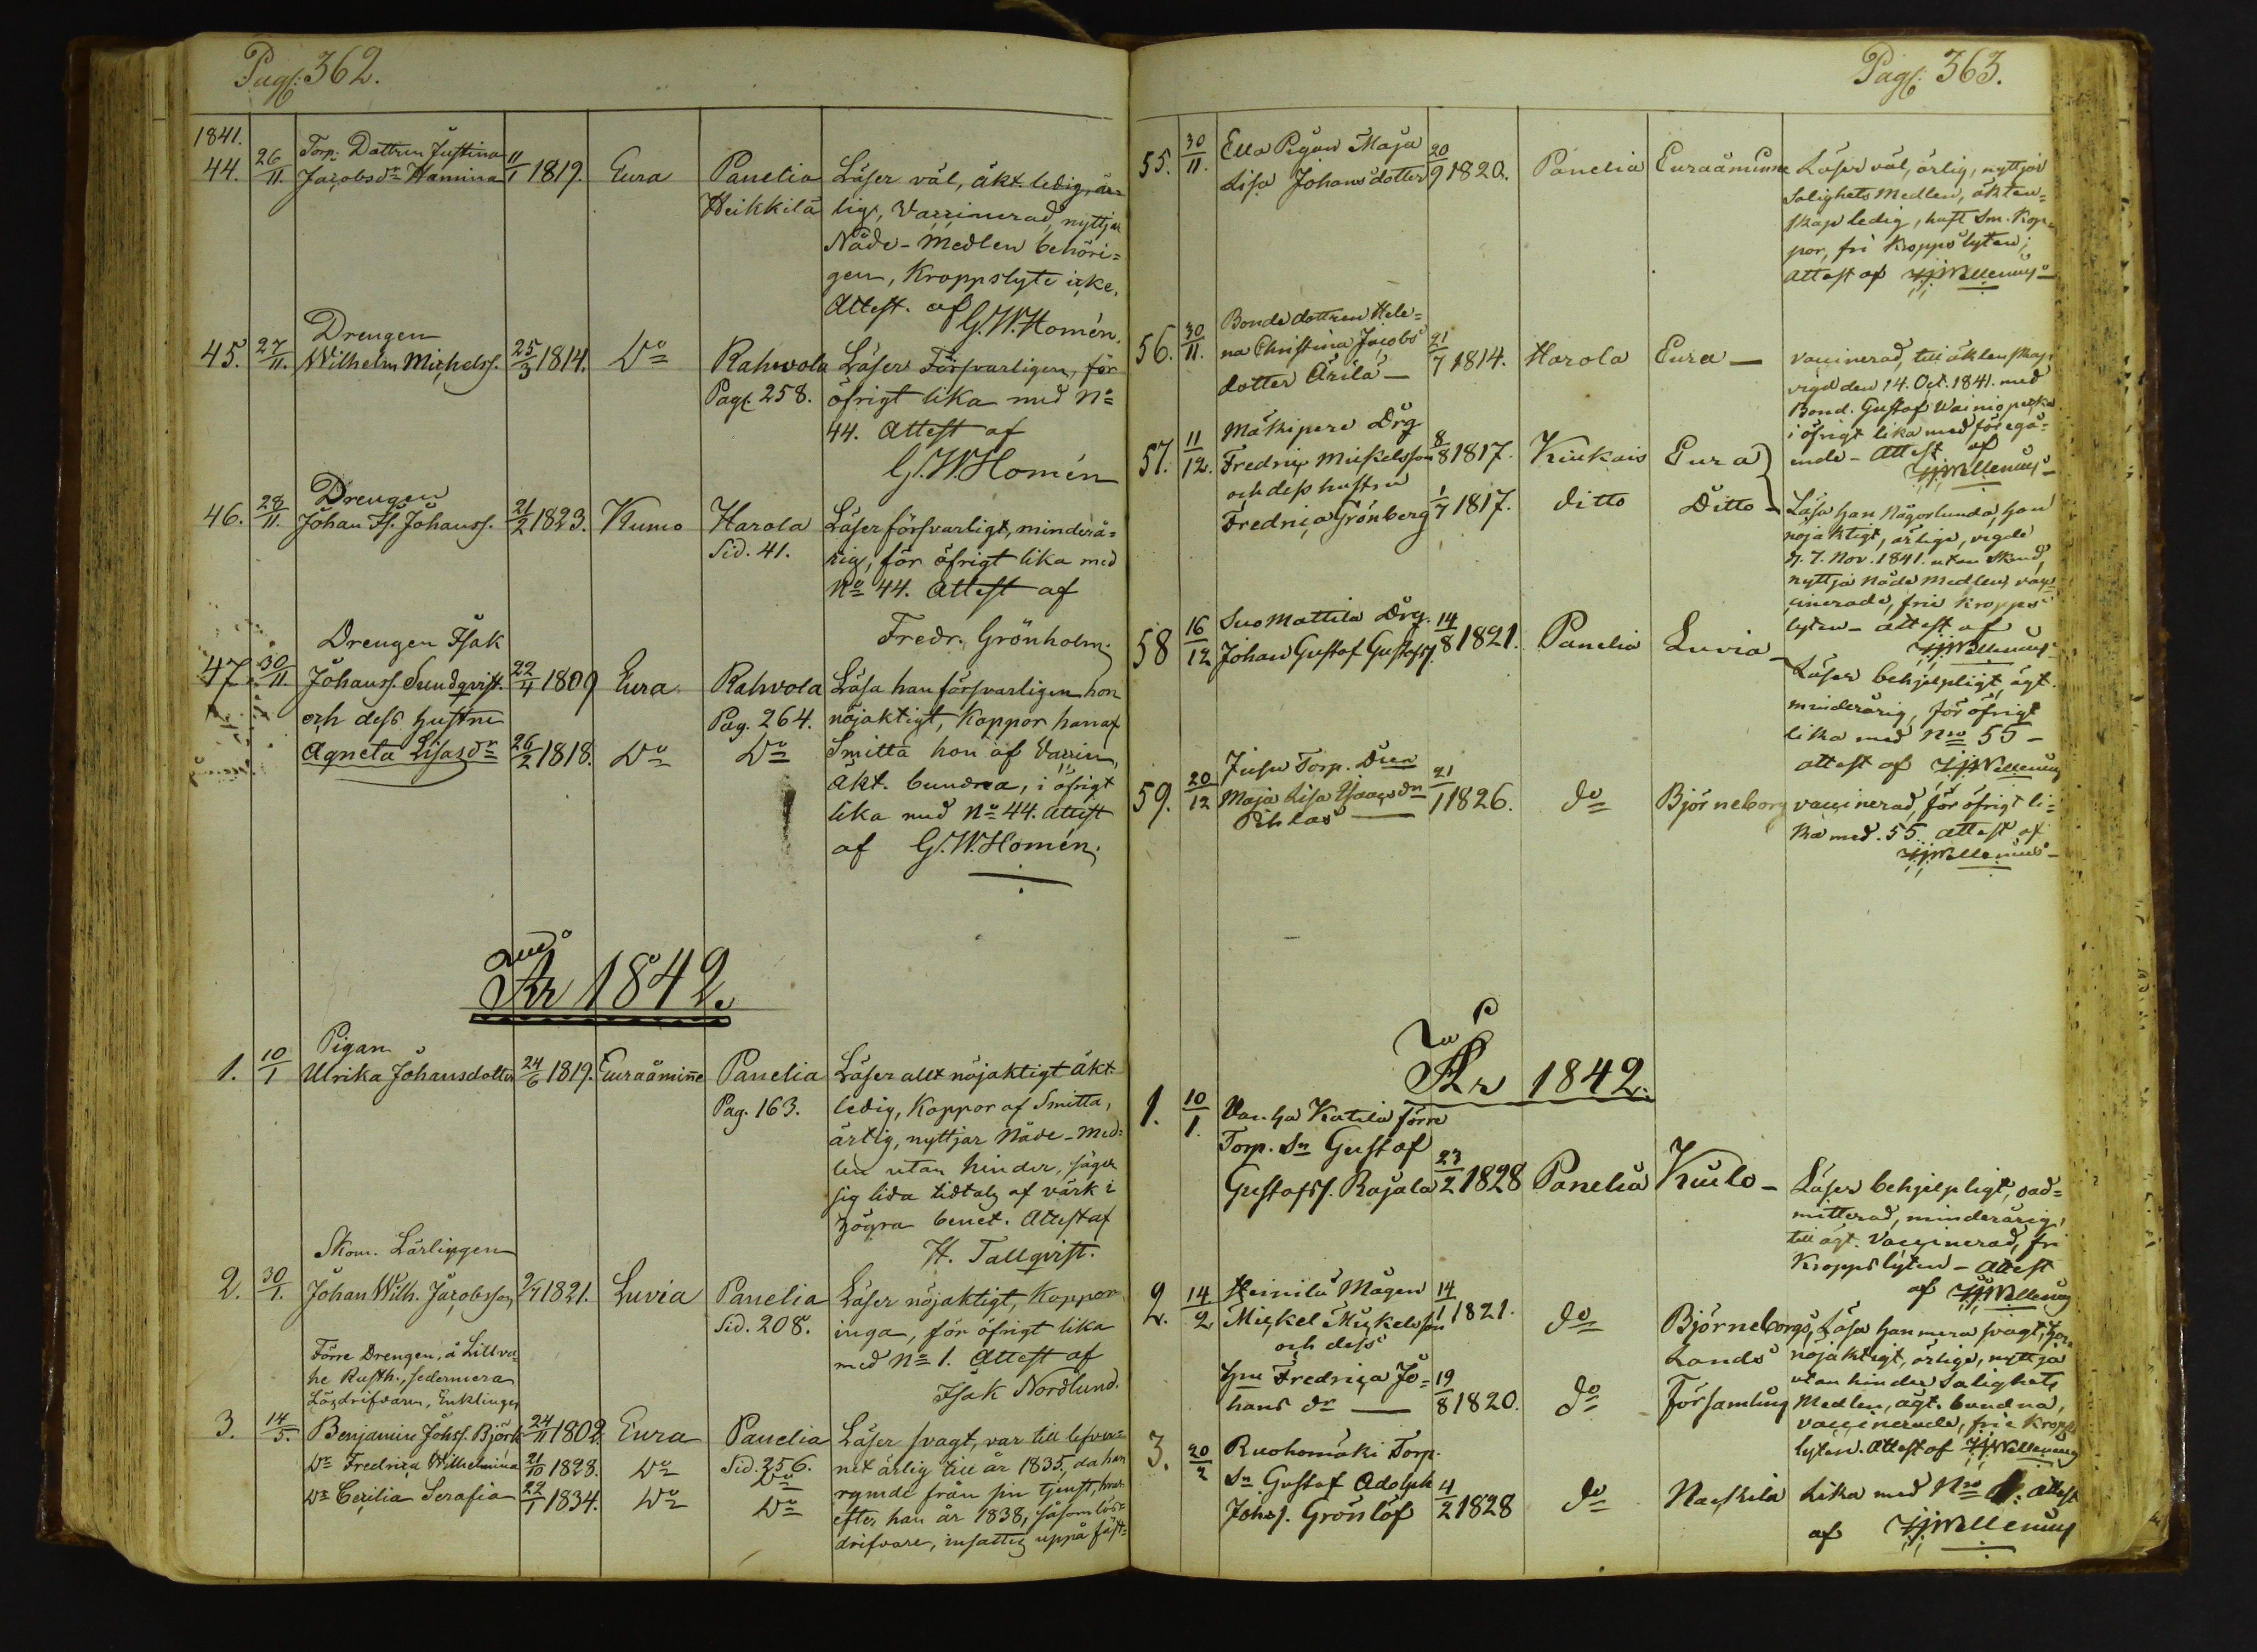 Pag: 362.
1841.
44. 26/11. Torp. Dottren Justina
Jacobsdr Hamina 11/1 1819. Eura Panelia Heikkilä
Läser väl, äkt. ledig, är=
lig, Vaccinerad, nyttjar
Nåde-Medlen behöri=
gen, Kroppslyte icke.
Attest. af G. W. Homén.
45. 27/11. Drengen
Wilhelm Michelss. 25/3 1814. Do Rahvola Pag. 258.
Läser Försvarligen, för
öfrigt lika med No
44. Attest af
G. W. Homén
46. 28/11. Drengen
Johan Fr. Johanss. 21/2 1823. Kumo Harola Sid. 41.
Läser försvarligt, minderå=
rig, för öfrigt lika med
No 44. Attest af
Fredr. Grönholm.
47. 30/11. Drengen Isak
Johanss. Sundqvist. 22/4 1809 Eura Rahvola Pag. 264.
och dess hustru
Agneta Lisasdr 26/2 1818. Do Do
Läsa han försvarligen hon
nöjaktigt, Koppor han af
Smitta hon af Vaccin,
äkt. bundna, i öfrigt
lika med No 44. Attest
af G. W. Homén.
År 1842.
1. 10/1 Pigan
Ulrika Johansdotter 24/6 1819. Euraåminne Panelia Pag. 163.
Läser allt nöjaktigt äkt.
ledig, Koppor af Smitta,
ärlig, nyttjar Nåde-Med=
len utan hinder, säger
sig lida tidtals af värk i
högra benet. Attest af
H. Tallqvist.
2. 30/1. Skom. Lärlingen
Johan Wilh. Jacobsson 1821. Luvia Panelia Sid. 208.
Läser nöjaktigt, Koppor
inga, för öfrigt lika
med No 1. Attest af
Isak Nordlund.
Förre Drengen, å Lillva=
he Rusth., sedermera
Lösdrifvaren, Enklingen
3. 14/5. Benjamin Johss. Björk 24/11 1802. Eura Panelia Sid. 256.
Dr Fredrica Wilhelmina 21/10 1828. Do Do
Dr Cecilia Serafia 22/1 1834. Do Do
Läser svagt, var till lefver=
net ärlig till år 1835, da han
rymde från sin tjenst, hvar=
efter han år 1838, såsom lös=
drifvare, insattes uppå fäst=
Pag: 363.
55. 30/11. Ella Pigan Maja
Lisa Johansdotter 20/9 1820. Panelia Euraåminne
Läser väl, ärlig, nyttjar
Salighets Medlen, äkten=
skap ledig, haft Sm. Kop=
por, fri Kroppslyten;
Attest af
56. 30/11. Bonde dottren Hele=
na Christina Jacobs
dotter Ärilä 21/7 1814. Harola Eura
vaccinerad, till äktenskap
vigd den 14. Oct. 1841. med
Bond. Gustaf
i öfrigt lika med föregå=
ende - Attest af
57. 11/12. Mäkipere Drg
Fredric Mickelsson 8/8 1817. Kiukais Eura
och dess hustru
Fredrica Grönberg 1/7 1817. ditto Ditto
Läsa han någorlunda, hon
nöjaktigt, ärlige, vigde
d. 7. Nov. 1841. utan
nyttja Nåde Medlen, vac=
cinerade, frie Kropps
lyten - attest af
58 16/12 Suo Mattila Drg.
Johan Gustaf Gustafss. 14/8 1821. Panelia Luvia
Läser behjelpligt, ägt.
minderårig, för öfrigt
lika med No 55 -
attest af
59. 20/12 Torp.
Maja Lisa Isaacsdr
Pihlas 21/1 1826. do Björneborg
vaccinerad, för öfrigt li=
ka med. 55 attest af
År 1842.
1. 10/1. Vanha Katila förre
Torp. Sn Gustaf
Gustafss. Rajala 23/2 1828 Panelia
Läser behjelpligt, oad=
mitterad, minderårig,
till ägt. Vaccinerad, fri
Kroppslyten - Attest
af
2. 14/2 Heinilä Mågen
Mickel Mickelsson 14/1 1821. do Björneborgs
och dess
hu Fredrica Jo=
hans dr 19/8 1820. do Lands Församling
Läsa han mera svagt, hon
nöjaktigt, ärlige, nyttja
utan hinder Salighets
Medlen, ägt. bundna,
vaccinerade, frie Kropps
lyten. Attest af
3. 20/2 Ruohomäki Torp.
Sn Gustaf Adolph
Johss. Grönlöf 4/2 1828 do Nackila
Lika med No 1. Attest
af